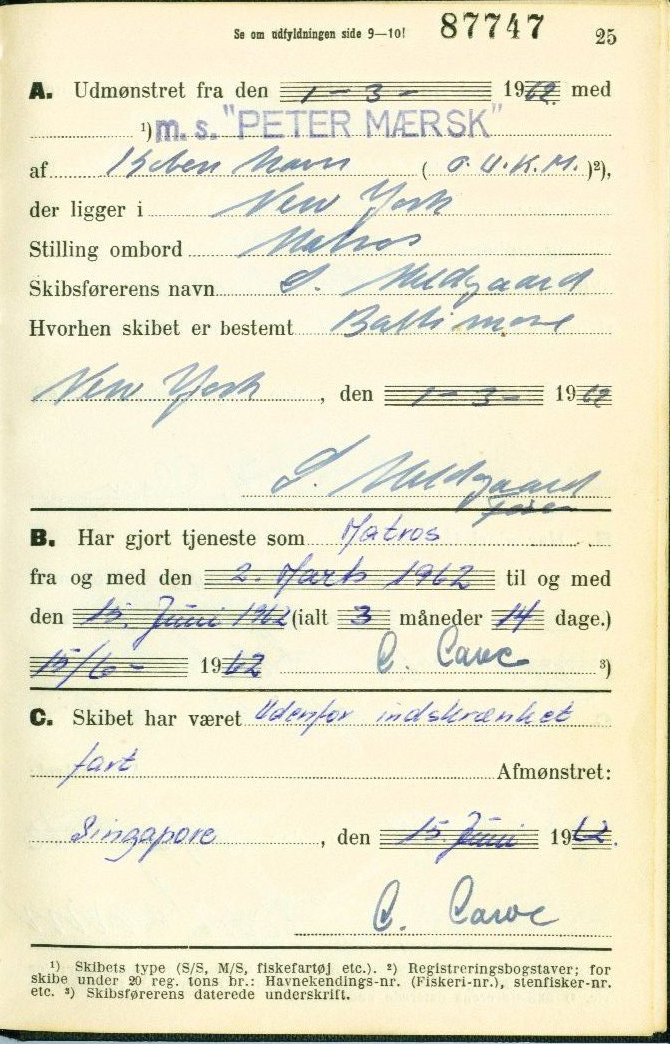 Se om udfyldningen side 9—10! 87747 25
A. Udmønstret fra den 1-3- 1962 med
¹) m. s. "PETER MÆRSK"
af København (O.U.K.M.)²),
der ligger i New York
Stilling ombord Matros
Skibsførerens navn S. Meldgaard
Hvorhen skibet er bestemt Baltimore
New York, den 1-3- 1962
S. Meldgaard
B. Har gjort tjeneste som Matros
fra og med den 2. Marts 1962 til og med
den 15. Juni 1962 (ialt 3 måneder 14 dage.)
15/6- 1962 C. ³)
C. Skibet har været Udenfor indskrænket
fart Afmønstret:
Singapore, den 15. Juni 1962.
C.
¹) Skibets type (S/S, M/S, fiskefartøj etc.). ²) Registreringsbogstaver; for
skibe under 20 reg. tons br.: Havnekendings-nr. (Fiskeri-nr.), stenfisker-nr.
etc. ³) Skibsførerens daterede underskrift.